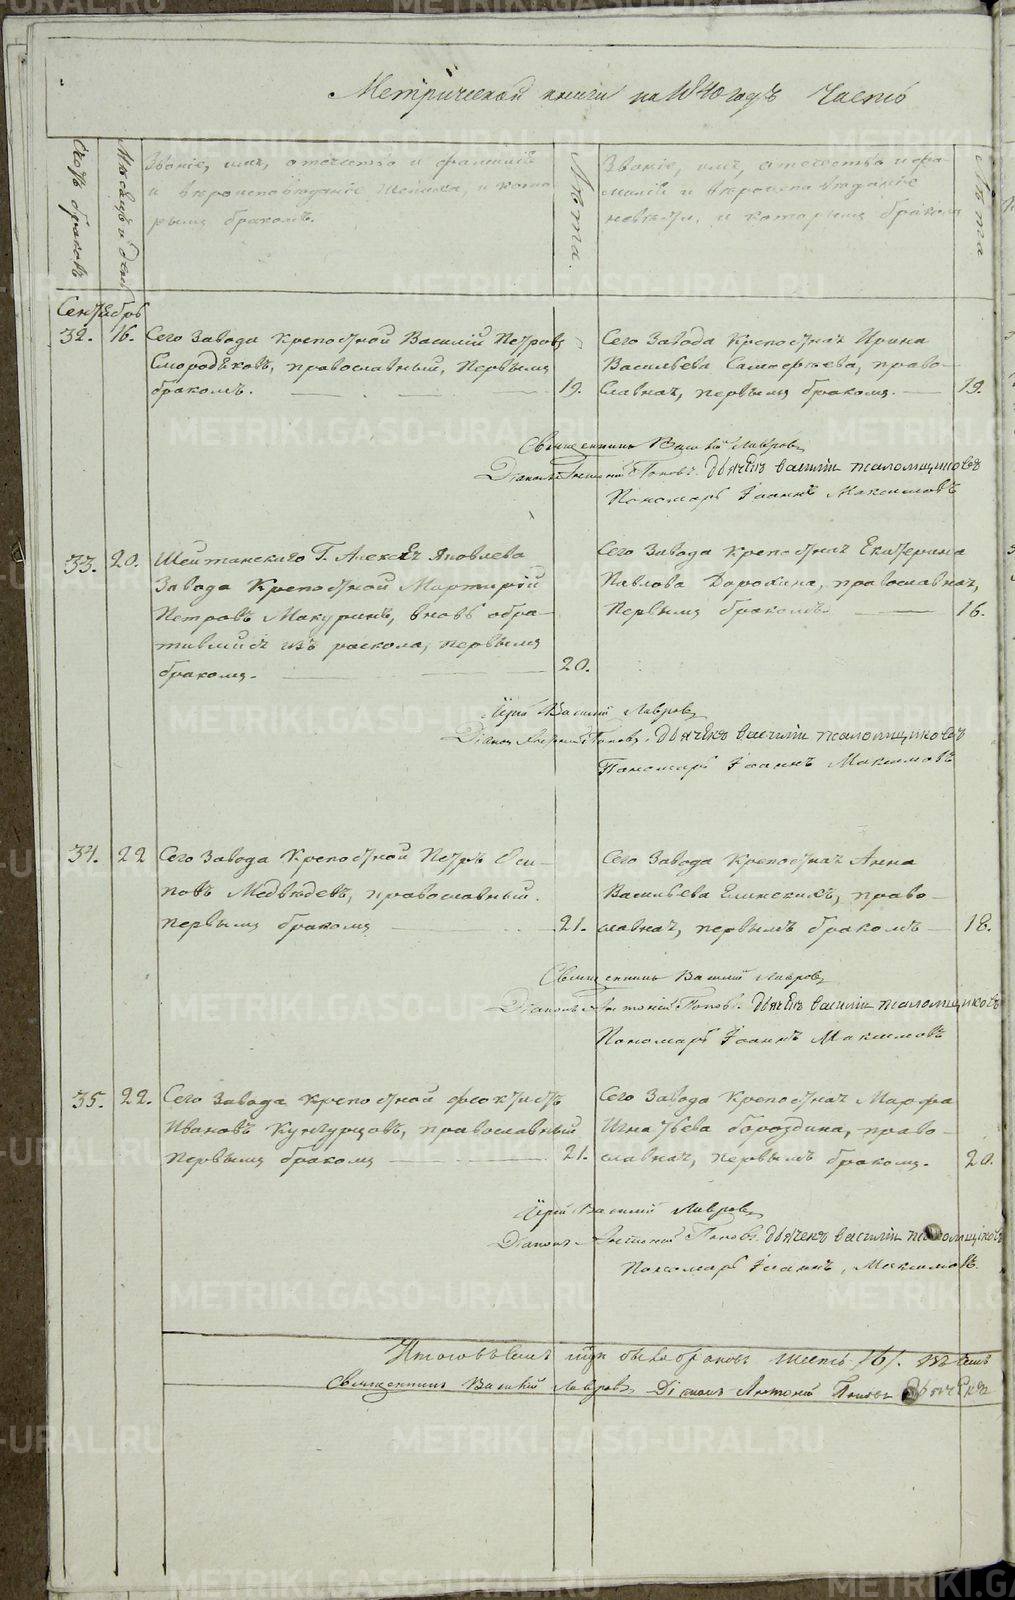 Метрической книги на 1840 годъ Часть
Счетъ браковъ
Мѣсяцъ и день
Званіе, имя, отечество и фамилія
и вѣроисповѣданіе жениха, и кото-
рымъ бракомъ.
Лѣта.
Званіе, имя, отечество и фа-
милія и вѣроисповѣданіе
невѣсты, и которымъ бракомъ
Лѣта
Сентябрь
32. 16. Сего Завода крепостной Василій Петровъ
Смородяковъ, православный, первымъ
бракомъ. 19.
Сего Завода крепостная Ирина
Васильева, право-
славная, первымъ бракомъ. 19.
Священникъ Василій Лавровъ
Діаконъ Антоній Поповъ. Дьячекъ Василіи Паломщиковъ
Пономарь Іоаннъ Максимовъ
33. 20. Шайтанскаго Г. Алексѣя Яковлева
Завода Крепостной Мартирій
Петровъ Макуринъ, вновь обра-
тившійся изъ раскола, первымъ
бракомъ. 20.
Сего Завода крепостная Екатерина
Павлова Дорохина, православная,
первымъ бракомъ. 16.
Іерей Василій Лавровъ
Діаконъ Антоній Поповъ. Дьячекъ Василіи Паломщиковъ
Пономарь Іоаннъ Максимовъ
34. 22 Сего Завода крепостной Петръ Оси-
повъ Медвѣдевъ, православный.
первымъ бракомъ 21.
Сего Завода Крепостная Анна
Васильева Елинскихъ, право-
славная, первымъ бракомъ 18.
Священникъ Василій Лавровъ
Діаконъ Антоній Поповъ. Дьячекъ Василіи Паломщиковъ
Пономарь Іоаннъ Максимовъ
35. 22. Сего Завода крепостной Феоктистъ
Ивановъ Кунгурцовъ, православный
первымъ бракомъ 21.
Сего Завода Крепостная Марфа
Игнатьева Бороздина, право-
славная, первымъ бракомъ. 20.
Іерей Василій Лавровъ
Діаконъ Антоній Поповъ. Дьячекъ Василіи Паломщиковъ
Пономарь Іоаннъ Максимовъ.
Итого въ семъ было браковъ шесть /6/.
Священникъ Василій Лавровъ Діаконъ Антоній Поповъ Дьячекъ
METRIKI.GASO-URAL.RU